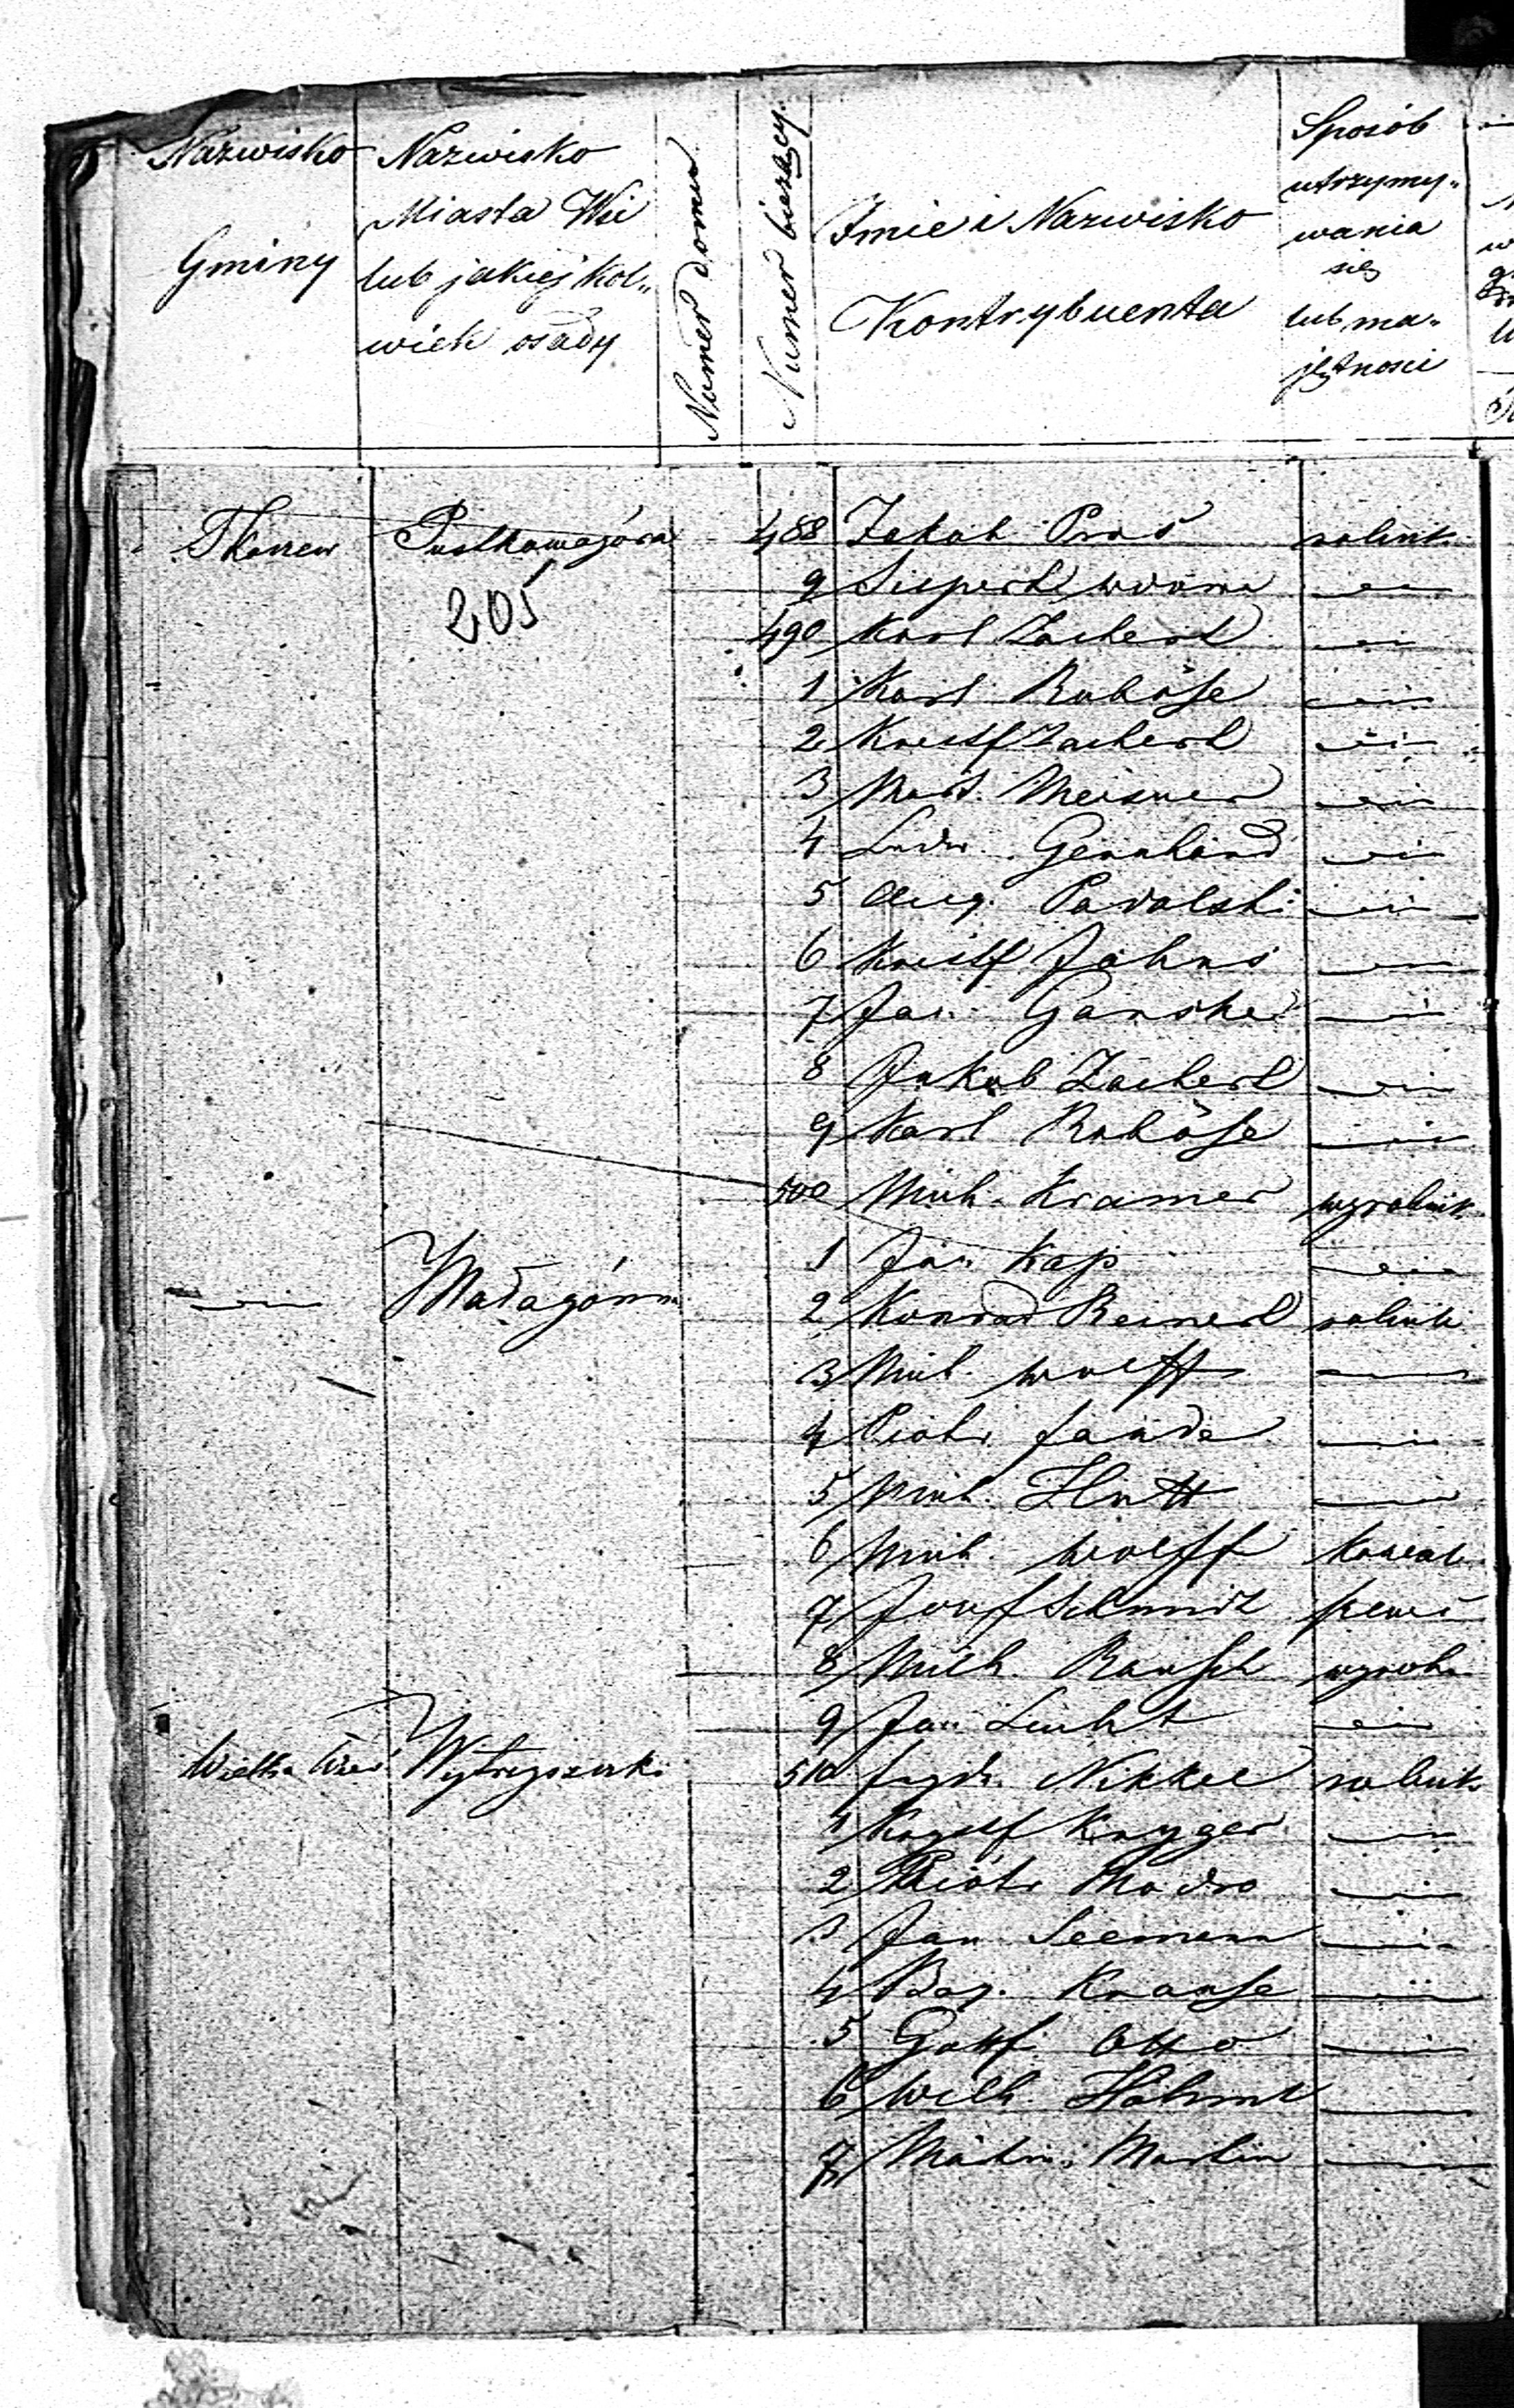 Nazwisko Gminy
Nazwisko Miasta Wsi lub jakiej kol„ wiek osady
Numer domu
Numer bieżący
Imie i Nazwisko Kontrybuenta
Sposób utrzymy„ wania się lub ma„ jętnosci
Tkaczew Pustkowagóra 488 Jakob Pras rolnik
205
9 Siepert wdowa —"—
490 Karl Zachert —"—
1 Karl Raböse —"—
2 Kristf Zachert —"—
3 Mart. Meisner —"—
4 Ludw. Genahand —"—
5 Aug. Padolski —"—
6 Kristf Jahns —"—
7 Jan Ganske —"—
8 Jakob Zachert —"—
9 Karl Raböse —"—
500 Mich. Kramer wyrobnik
1 Jan Kap —"—
—"— Madagóra 2 Konrad Reinert rolnik
3 Mich. Wolff —"—
4 Piotr —"—
5 Mich. Hutt —"—
6 Mich. Wolff kowal
7 Schmidt
8 Mich. Rausch wyrobn
9 Jan Licht —"—
Wielka Wies Wytrzyszczki 510 Frydr. Nikkel rolnik
1 Krystf Kryger —"—
2 Piotr Modro —"—
3 Jan Seemann —"—
4 Bog. Krause —"—
5 Gottf. Otto —"—
6 Wilh. Hahmt —"—
7 Martin —"—